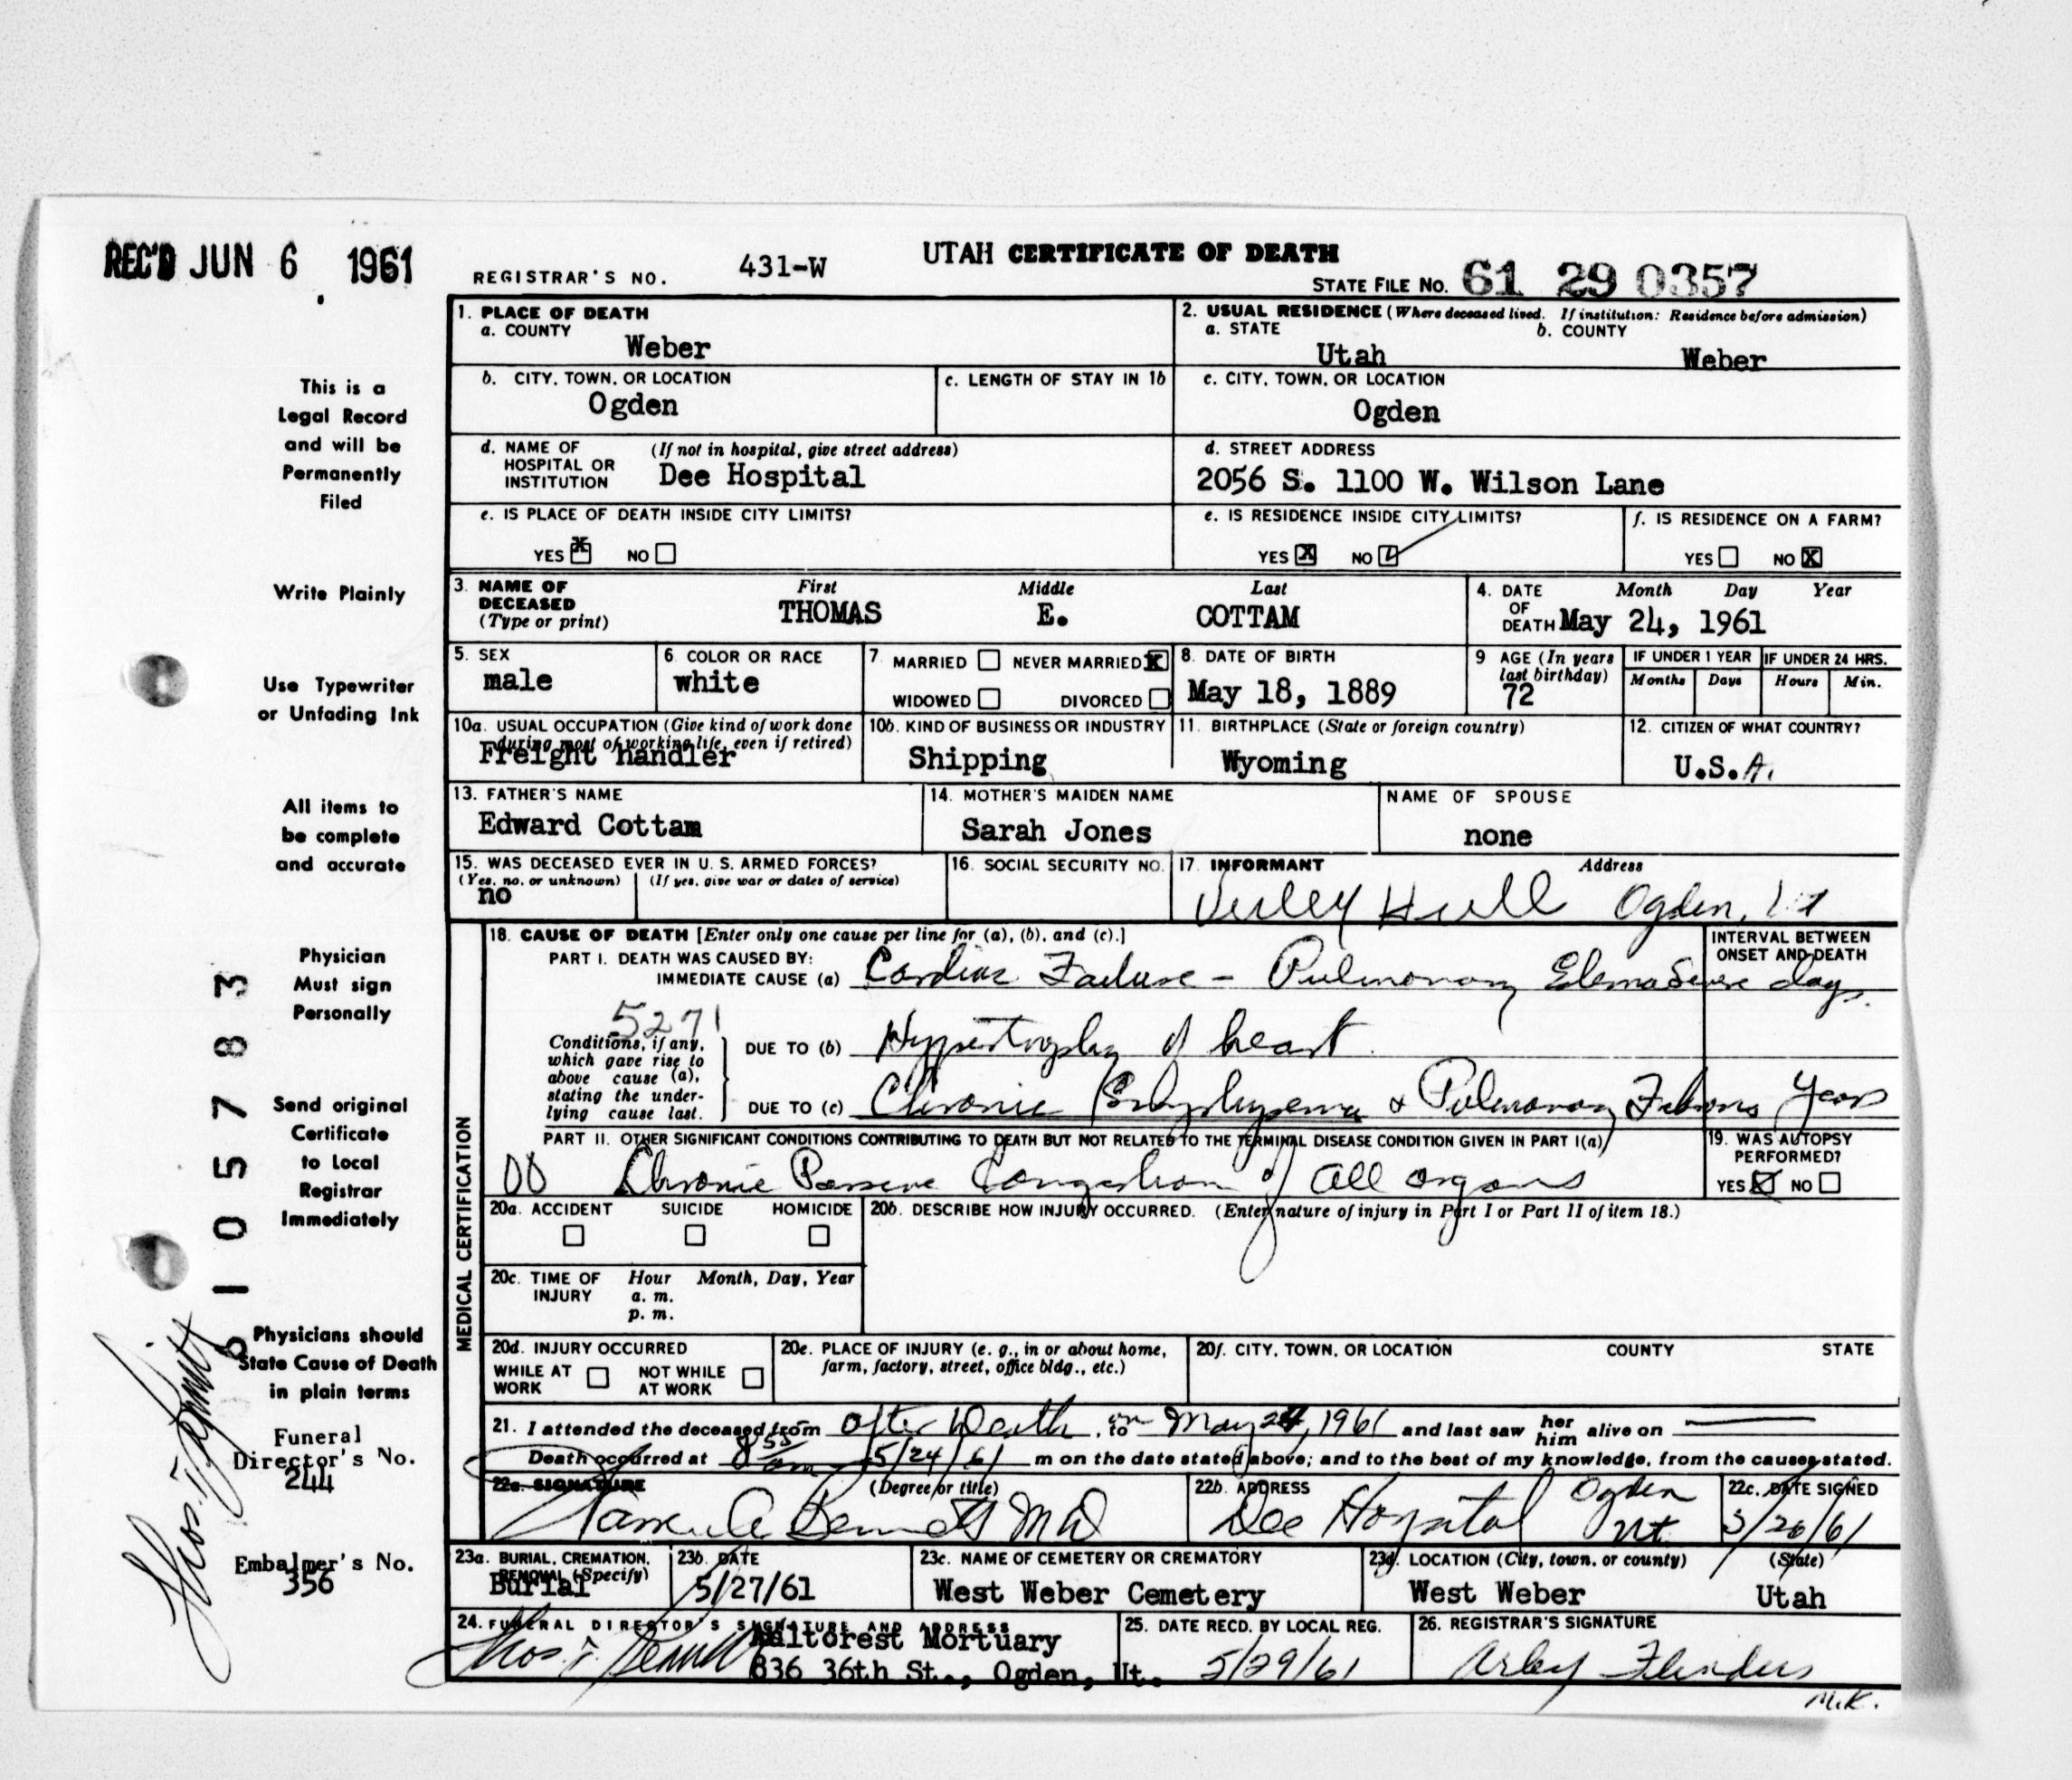 REC'D JUN 6 1961
UTAH CERTIFICATE OF DEATH
REGISTRAR'S NO. 431-W
STATE FILE NO. 61 29 0357
This is a
Legal Record
and will be
Permanently
Filed
Write Plainly
Use Typewriter
or Unfading Ink
All items to
be complete
and accurate
Physician
Must sign
Personally
Send original
Certificate
to Local
Registrar
Immediately
Physicians should
State Cause of Death
in plain terms
Funeral
Director's No.
244
Embalmer's No.
356
6105783
1. PLACE OF DEATH
a. COUNTY
Weber
2. USUAL RESIDENCE (Where deceased lived. If institution: Residence before admission)
a. STATE b. COUNTY
Utah Weber
b. CITY, TOWN, OR LOCATION
Ogden
c. LENGTH OF STAY IN 1b
c. CITY, TOWN, OR LOCATION
Ogden
d. NAME OF (If not in hospital, give street address)
HOSPITAL OR
INSTITUTION Dee Hospital
d. STREET ADDRESS
2056 S. 1100 W. Wilson Lane
e. IS PLACE OF DEATH INSIDE CITY LIMITS?
YES X NO
e. IS RESIDENCE INSIDE CITY LIMITS?
YES X NO
f. IS RESIDENCE ON A FARM?
YES NO X
3. NAME OF First Middle Last
DECEASED
(Type or print) THOMAS E. COTTAM
4. DATE Month Day Year
OF
DEATH May 24, 1961
5. SEX
male
6. COLOR OR RACE
white
7. MARRIED NEVER MARRIED X
WIDOWED DIVORCED
8. DATE OF BIRTH
May 18, 1889
9 AGE (In years
last birthday)
72
IF UNDER 1 YEAR IF UNDER 24 HRS.
Months Days Hours Min.
10a. USUAL OCCUPATION (Give kind of work done
during most of working life, even if retired)
Freight handler
10b. KIND OF BUSINESS OR INDUSTRY
Shipping
11. BIRTHPLACE (State or foreign country)
Wyoming
12. CITIZEN OF WHAT COUNTRY?
U.S.A.
13. FATHER'S NAME
Edward Cottam
14. MOTHER'S MAIDEN NAME
Sarah Jones
NAME OF SPOUSE
none
15. WAS DECEASED EVER IN U. S. ARMED FORCES?
(Yes, no, or unknown) (If yes, give war or dates of service)
no
16. SOCIAL SECURITY NO.
17. INFORMANT Address
Hull Ogden, Ut
MEDICAL CERTIFICATION
18. CAUSE OF DEATH [Enter only one cause per line for (a), (b), and (c).]
INTERVAL BETWEEN
ONSET AND DEATH
PART I. DEATH WAS CAUSED BY:
IMMEDIATE CAUSE (a) Cardiac Failure - Pulmonary Edema Severe days.
5271
Conditions, if any,
which gave rise to
above cause (a),
stating the under-
lying cause last.
DUE TO (b) Hypertrophy of heart
DUE TO (c) Chronic Emphysema & Pulmonary Fibrosis Years
PART II. OTHER SIGNIFICANT CONDITIONS CONTRIBUTING TO DEATH BUT NOT RELATED TO THE TERMINAL DISEASE CONDITION GIVEN IN PART I(a)
Chronic Passive Congestion of all organs
19. WAS AUTOPSY
PERFORMED?
YES X NO
20a. ACCIDENT SUICIDE HOMICIDE
20b. DESCRIBE HOW INJURY OCCURRED. (Enter nature of injury in Part I or Part II of item 18.)
20c. TIME OF Hour Month, Day, Year
INJURY a. m.
p. m.
20d. INJURY OCCURRED
WHILE AT NOT WHILE
WORK AT WORK
20e. PLACE OF INJURY (e. g., in or about home,
farm, factory, street, office bldg., etc.)
20f. CITY, TOWN, OR LOCATION COUNTY STATE
21. I attended the deceased from after Death, to on May 24, 1961 and last saw her him alive on
Death occurred at 8 55 am 5/24/61 m on the date stated above; and to the best of my knowledge, from the causes stated.
22a. SIGNATURE (Degree or title)
Bennett MD
22b. ADDRESS
Dee Hospital Ogden Ut.
22c. DATE SIGNED
5/26/61
23a. BURIAL, CREMATION,
REMOVAL (Specify)
Burial
23b. DATE
5/27/61
23c. NAME OF CEMETERY OR CREMATORY
West Weber Cemetery
23d. LOCATION (City, town, or county) (State)
West Weber Utah
24. FUNERAL DIRECTOR'S SIGNATURE AND ADDRESS
Mortuary
836 36th St., Ogden, Ut.
25. DATE RECD. BY LOCAL REG.
5/29/61
26. REGISTRAR'S SIGNATURE
M.K.